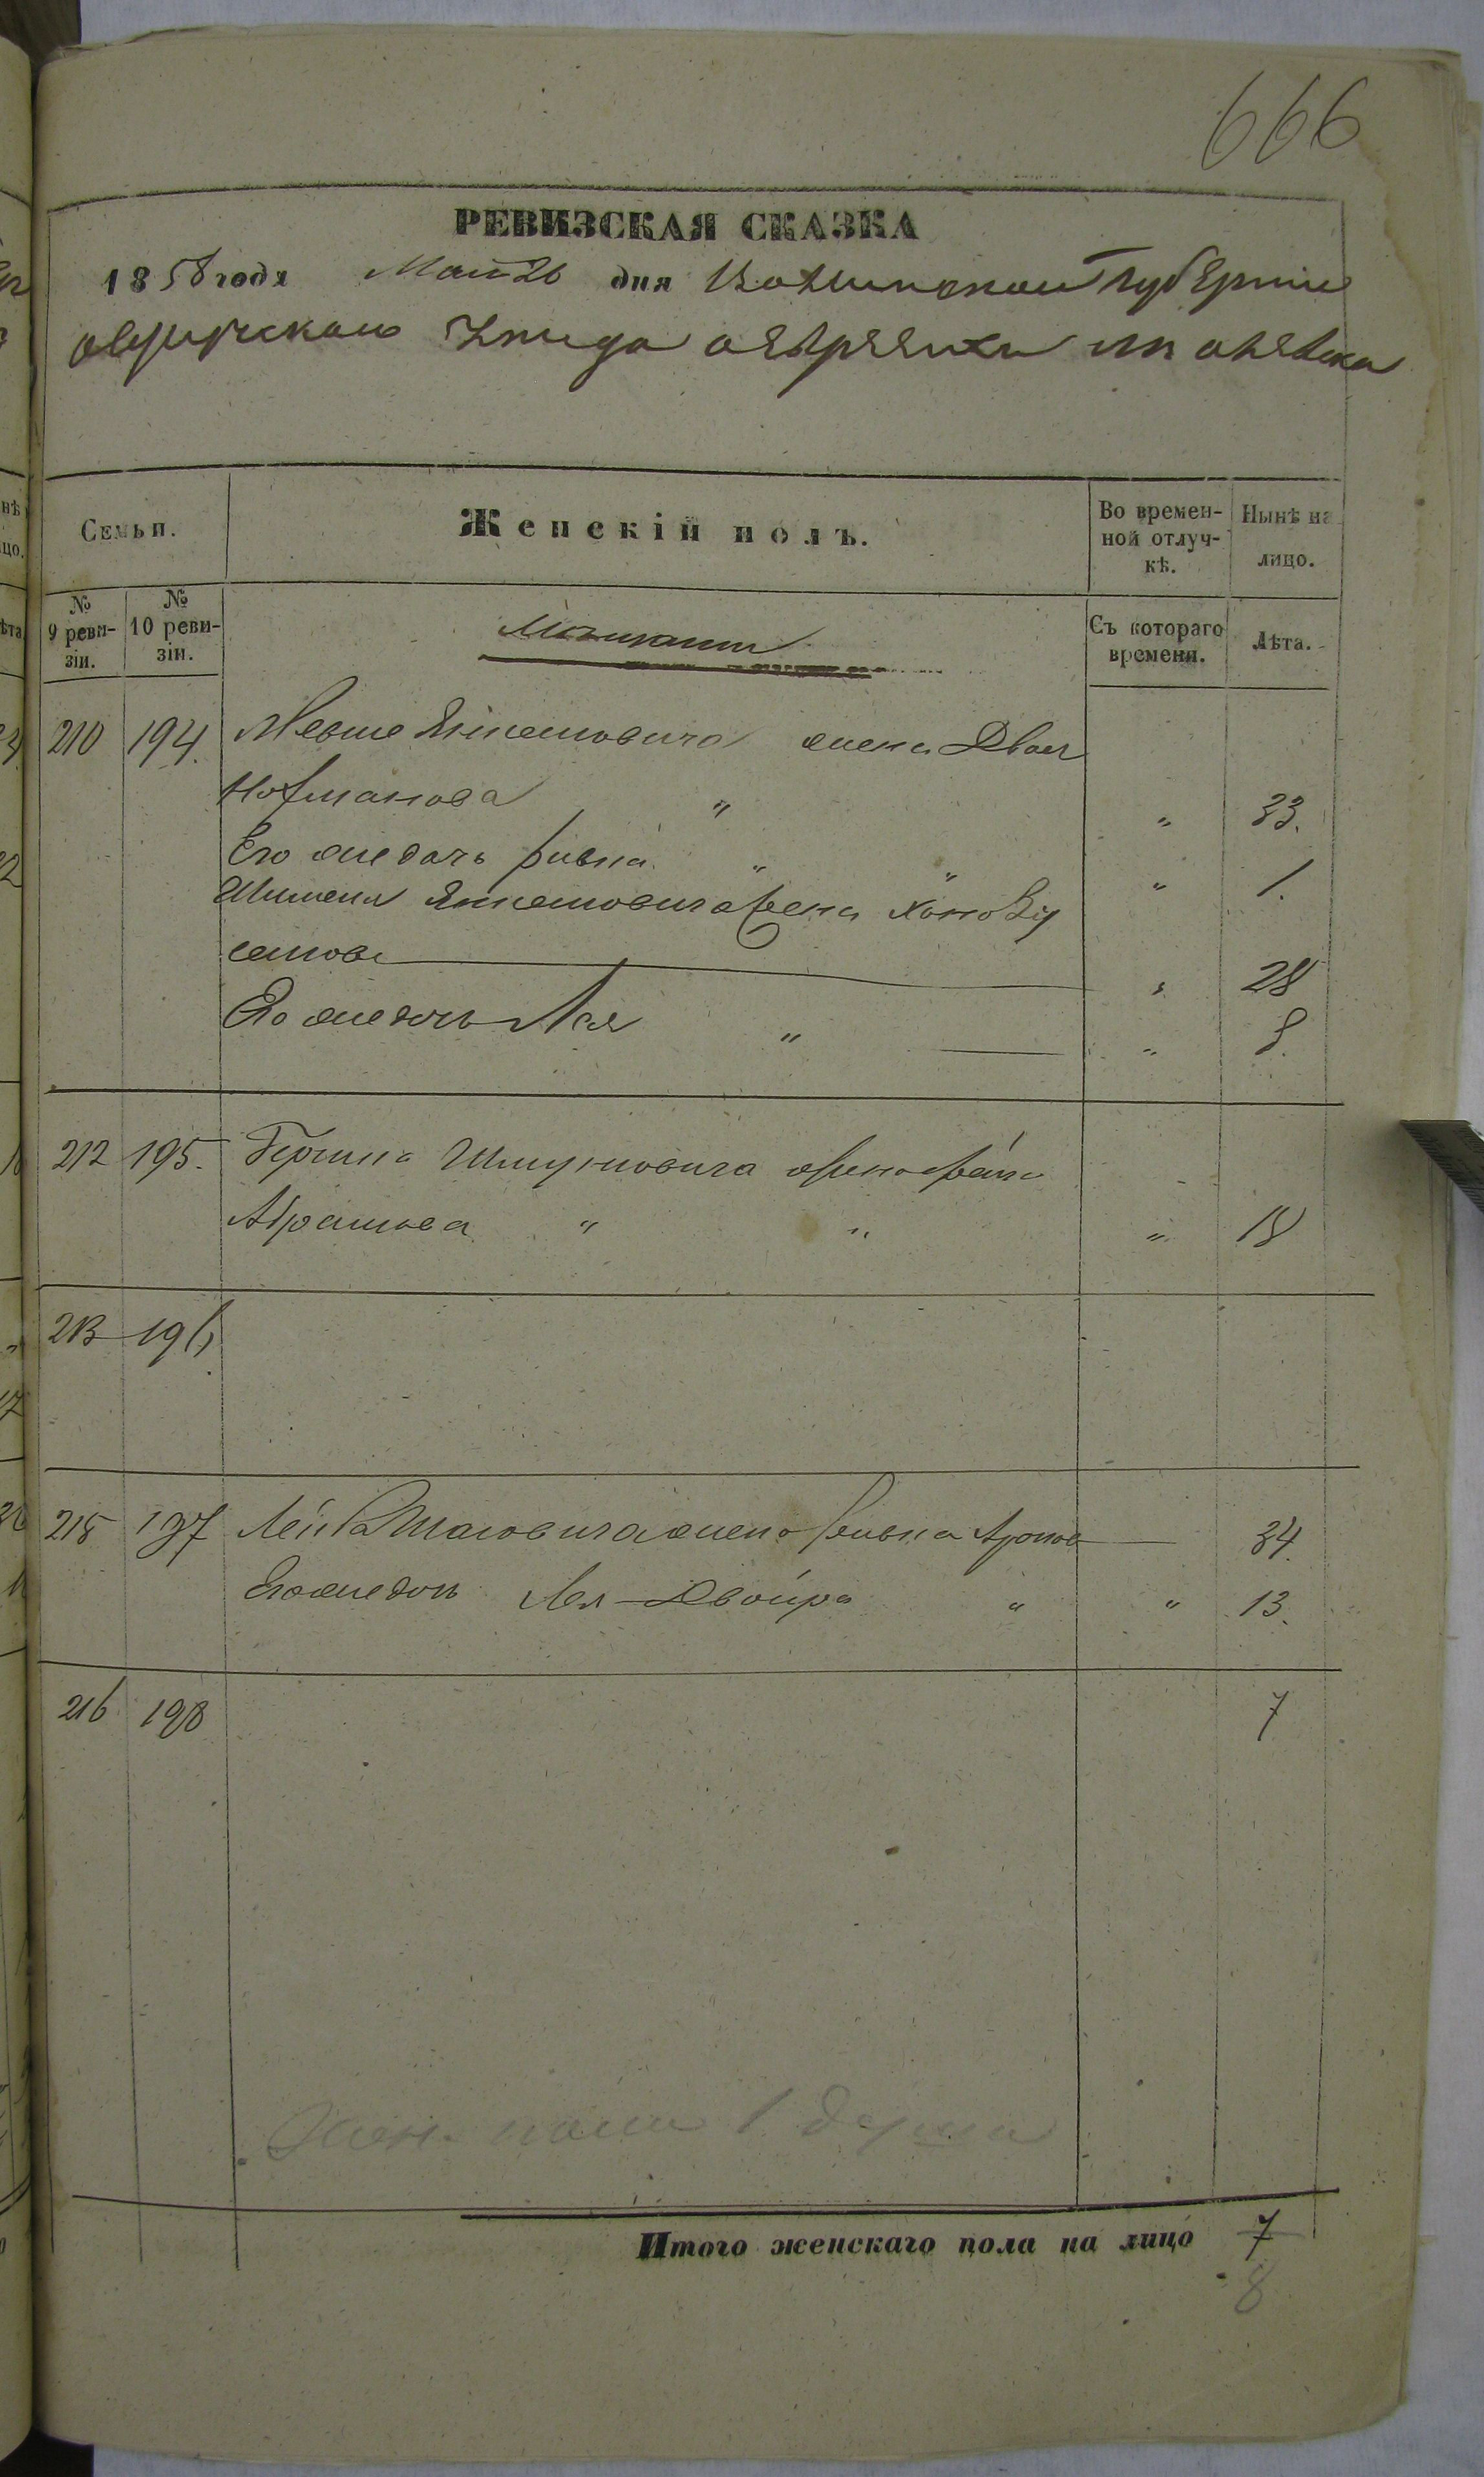 666
РЕВИЗСКАЯ СКАЗКА
1858 года Мая 26 дня Волынской Губернии
овручскаго уезда евреи
Семьи. Женскій полъ. Во времен-ной отлуч-кѣ. Нынѣ на лицо.
№ 9 реви-зіи. № 10 реви-зіи. Мещане Съ котораго времени. Лѣта.
210 194. Мевше Янкелевича жена Двося
Нохманова " " 33.
Его же дочь Ривка " " " 1.
Шмиеля Янкелевича жена Хана
" 28
Его же дочь Лея " "
212 195. Гершка Шмулиовича жена
Абрамова " " " 18
213 196
215 197 Лейба жена Ривка Аронова 34.
Его же дочь Лея-Двойра " " 13.
216 198 7
Жен. пола 1 душа
Итого женскаго пола на лицо 7
8